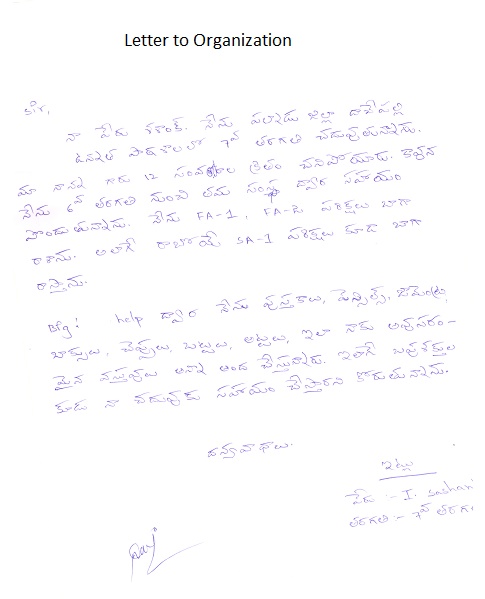 Letter to Organization
Sir,
నా పేరు శశాంక్. నేను పల్నాడు జిల్లా దాచేపల్లి
ఉన్నత పాఠశాలలో 7వ తరగతి చదువుతున్నాను.
మా నాన్న గారు 12 సంవత్సరాల క్రితం చనిపోయారు. కావున
నేను 6వ తరగతి నుంచి తమ సంస్థ ద్వారా సహాయం
పొందుతున్నాను. నేను FA-1, FA-2 పరీక్షలు బాగా
రాశాను. అలాగే రాబోయే SA-1 పరీక్షలు కూడా బాగా
రాస్తాను.
help ద్వారా నేను పుస్తకాలు, పెన్సిల్స్, జామెంట్రి
బాక్సులు, చెప్పులు, బట్టలు, అట్టలు, ఇలా నాకు అవసరం-
మైన వస్తువులు అన్నీ అంద చేస్తున్నారు. ఇలాగే
కూడా నా చదువుకు సహాయం చేస్తారని కోరుతున్నాను.
ధన్యవాదాలు.
ఇట్లు
పేరు :- I.
తరగతి :- 7వ తరగ